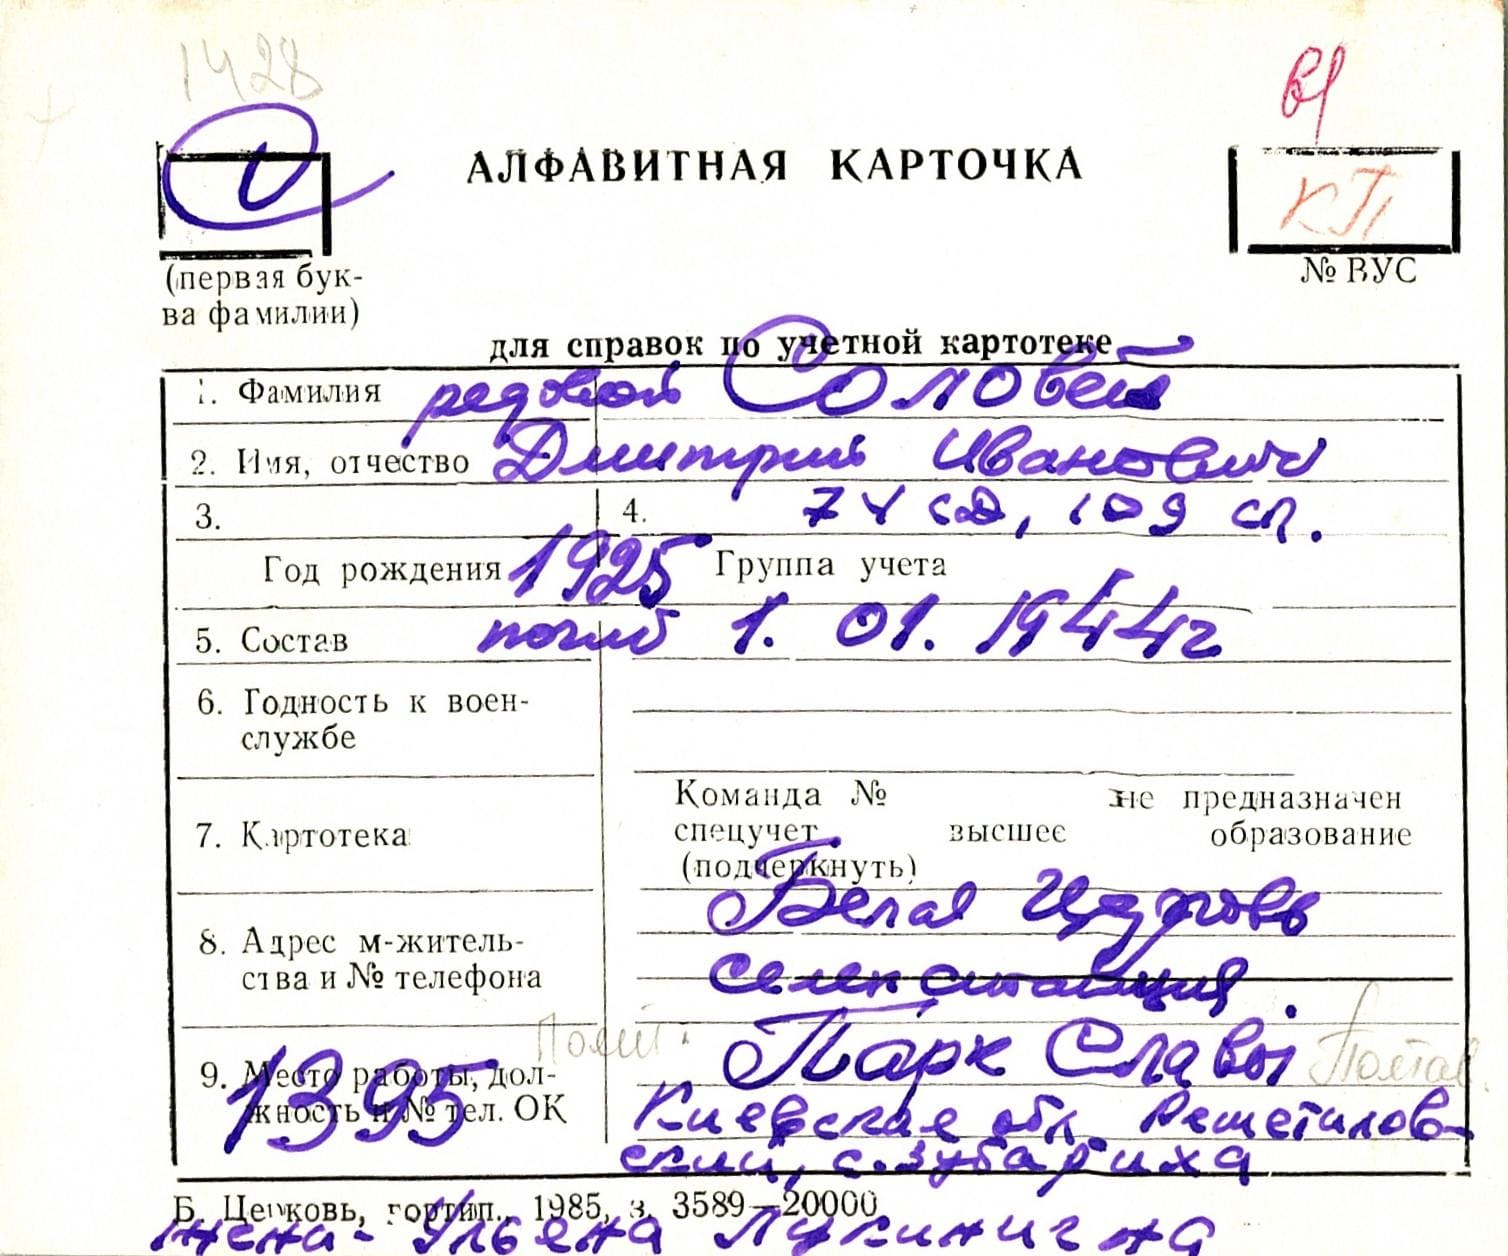 1428
вд
АЛФАВИТНАЯ КАРТОЧКА
КП
(первая бук-
ва фамилии)
№ ВУС
для справок по учетной картотеке
1. Фамилия рядовой Соловей
2. Имя, отчество Дмитрий Иванович
3. 4. 74 сд, 109 сп.
Год рождения 1925 Группа учета
5. Состав погиб 1. 01. 1944г
6. Годность к воен-
службе
Команда № не предназначен
7. Картотека спецучет высшее образование
(подчеркнуть)
Белая Церковь
8. Адрес м-житель-
ства и № телефона селекстанция.
Парк Славы Полтав.
9. Место работы, дол-
жность и № тел. ОК 1395
Киевская обл Решетилов-
ский, с. Зубариха
Б. Церковь, гортип., 1985, з. 3589—20000
жена - Ульена Лукинична